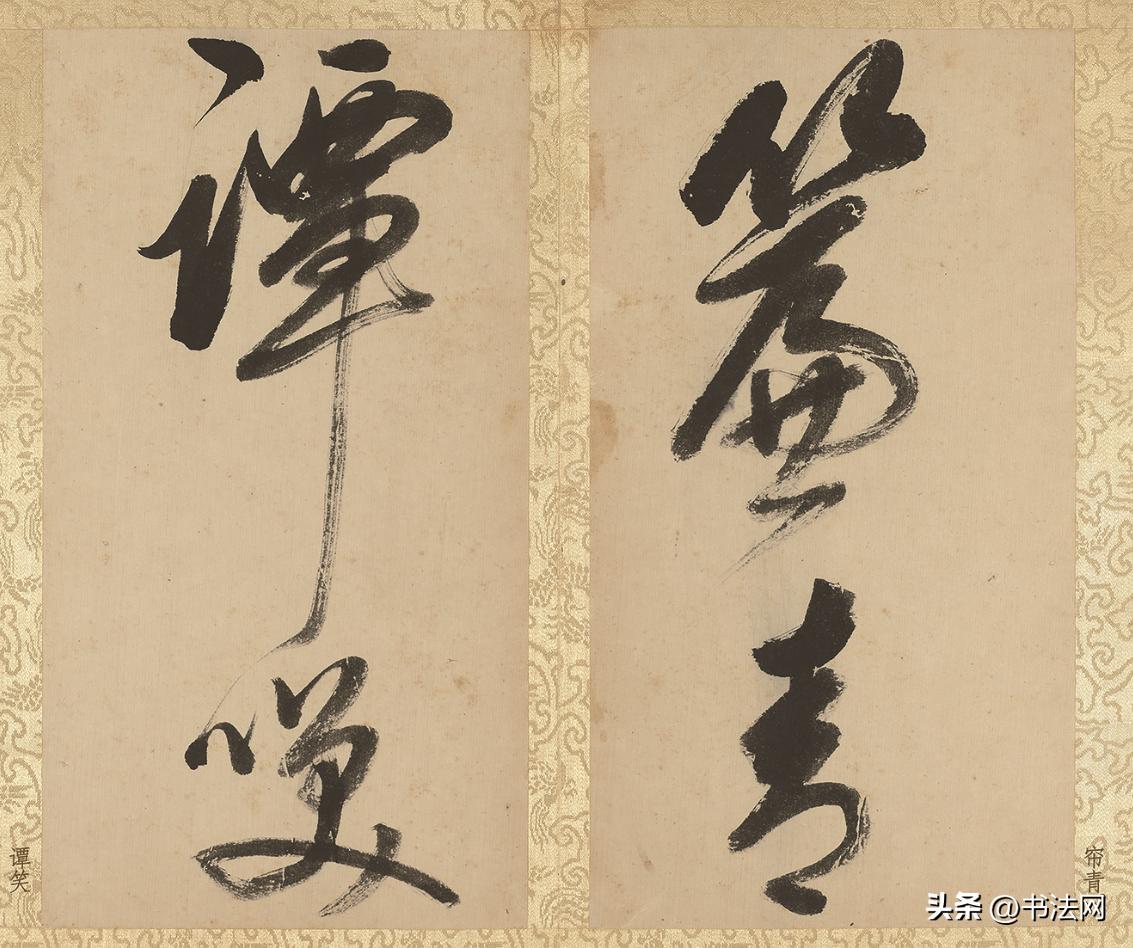 簾青
譚笑
帘青
谭笑
头条 @书法网